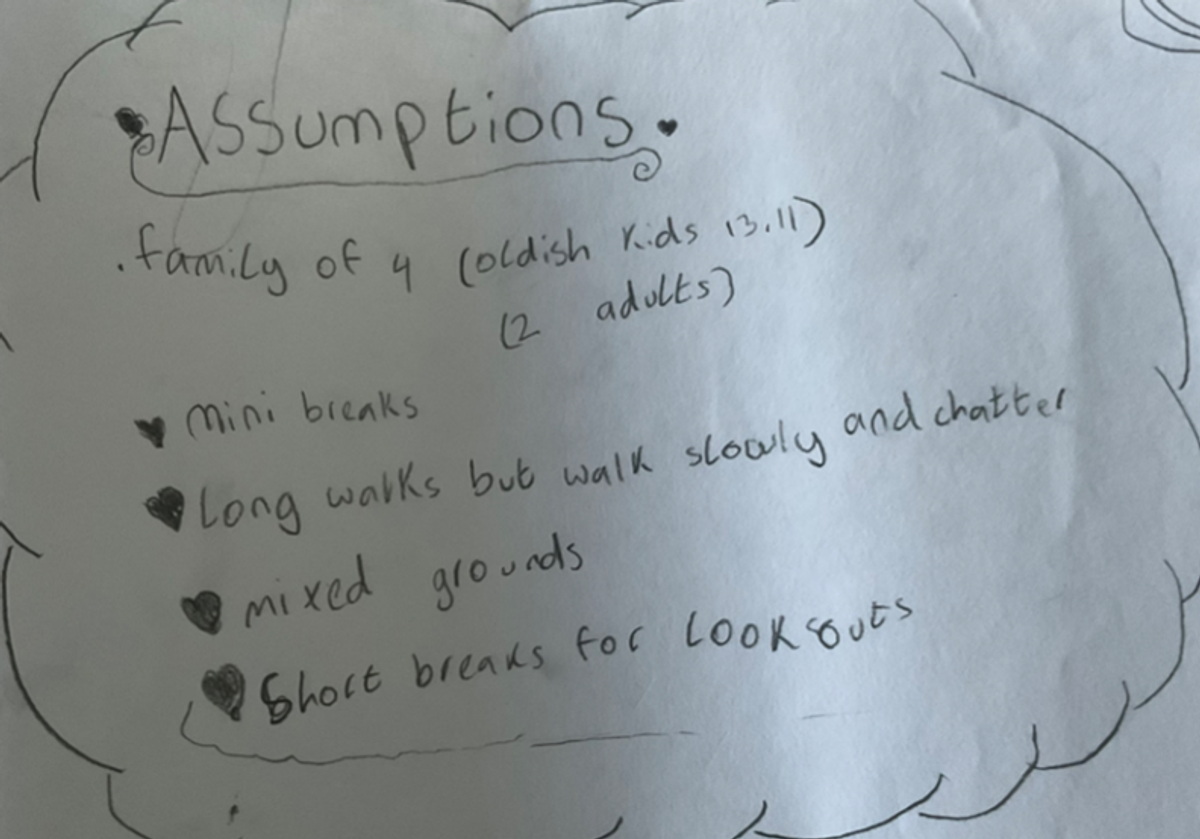 Assumptions.
. family of 4 (oldish kids 13.11)
(2 adults)
mini breaks
Long walks but walk slowly and chatter
mixed grounds
Short breaks for Lookouts